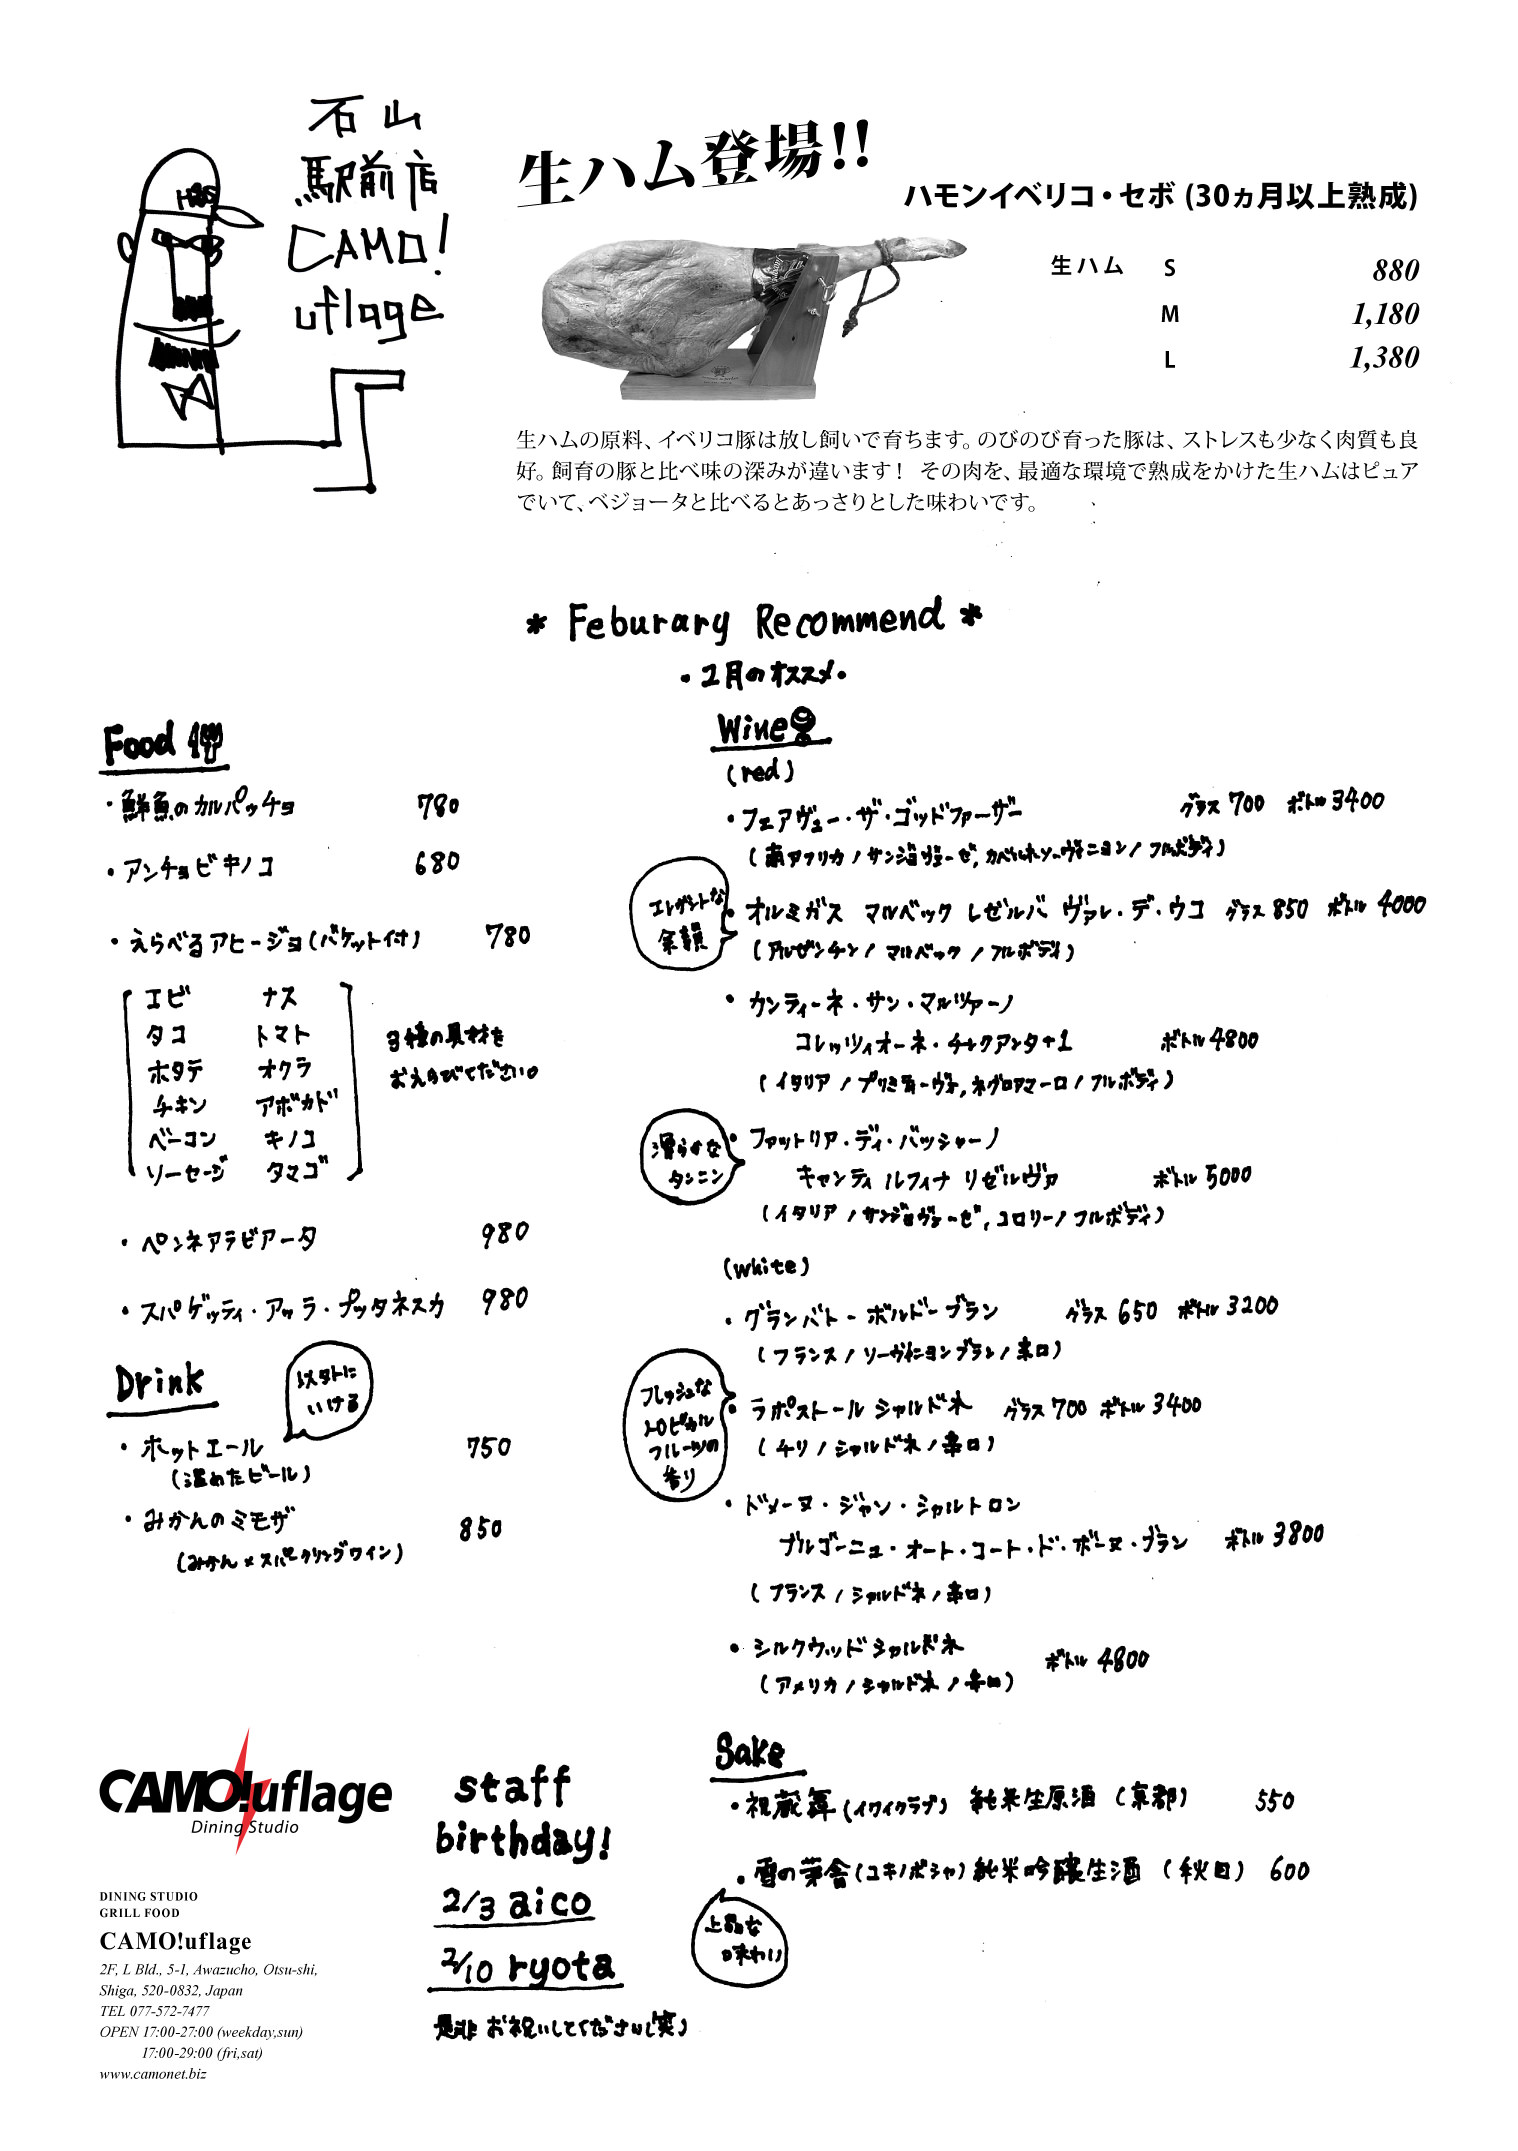 石山
駅前店
CAMO!
uflage
生ハム登場!!
ハモンイベリコ・セボ (30ヵ月以上熟成)
生ハム S 880
M 1,180
L 1,380
生ハムの原料、イベリコ豚は放し飼いで育ちます。のびのび育った豚は、ストレスも少なく肉質も良
好。飼育の豚と比べ味の深みが違います！ その肉を、最適な環境で熟成をかけた生ハムはピュア
でいて、ベジョータと比べるとあっさりとした味わいです。
* Feburary Recommend *
・2月のオススメ・
Food
・鮮魚のカルパッチョ 780
・アンチョビキノコ 680
・えらべるアヒージョ(バケット付) 780
エビ ナス
タコ トマト
ホタテ オクラ
チキン アボカド
ベーコン キノコ
ソーセージ タマゴ
3種の具材を
おえらびください。
・ペンネアラビアータ 980
・スパゲッティ・アッラ・プッタネスカ 980
Drink
以外に
いける
・ホットエール 750
(温めたビール)
・みかんのミモザ 850
(みかん×スパークリングワイン)
Wine
(red)
・フェアヴュー・ザ・ゴッドファーザー グラス 700 ボトル 3400
(南アフリカ / サンジョヴェーゼ, カベルネソーヴィニヨン / フルボディ)
エレガントな
余韻
・オルミガス マルベック レゼルバ ヴァレ・デ・ウコ グラス 850 ボトル 4000
(アルゼンチン / マルベック / フルボディ)
・カンティーネ・サン・マルツァーノ
コレッツィオーネ・チンクアンタ+1 ボトル 4800
(イタリア / プリミティーヴォ, ネグロアマーロ / フルボディ)
滑らかな
タンニン
・ファットリア・ディ・バッシャーノ
キャンティ ルフィナ リゼルヴァ ボトル 5000
(イタリア / サンジョヴェーゼ, コロリーノ フルボディ)
(white)
・グランバトー ボルドーブラン グラス 650 ボトル 3200
(フランス / ソーヴィニヨンブラン / 辛口)
フレッシュな
トロピカル
フルーツの
香り
・ラポストール シャルドネ グラス 700 ボトル 3400
(チリ / シャルドネ / 辛口)
・ドメーヌ・ジャン・シャルトロン
ブルゴーニュ・オート・コート・ド・ボーヌ・ブラン ボトル 3800
(フランス / シャルドネ / 辛口)
・シルクウッドシャルドネ ボトル 4800
(アメリカ / シャルドネ / 辛口)
Sake
・祝蔵舞(イワイクラブ) 純米生原酒 (京都) 550
・雪の茅舎(ユキノボシャ)純米吟醸生酒 (秋田) 600
上品な
味わい
CAMO!uflage
Dining Studio
DINING STUDIO
GRILL FOOD
CAMO!uflage
2F, L Bld., 5-1, Awazucho, Otsu-shi,
Shiga, 520-0832, Japan
TEL 077-572-7477
OPEN 17:00-27:00 (weekday,sun)
17:00-29:00 (fri,sat)
www.camonet.biz
staff
birthday!
2/3 aico
2/10 ryota
是非 お祝いしてください(笑)